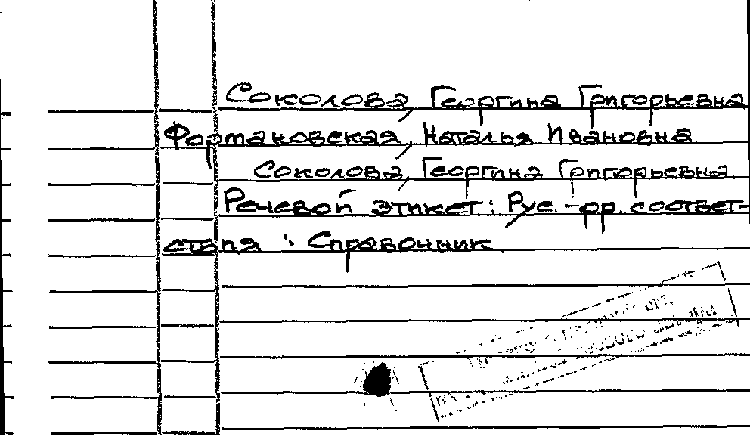 Соколова, Георгина Григорьевна
Формановская, Наталья Ивановна
Соколова, Георгина Григорьевна
Речевой этикет: Рус.-фр. соответ-
ствия : Справочник